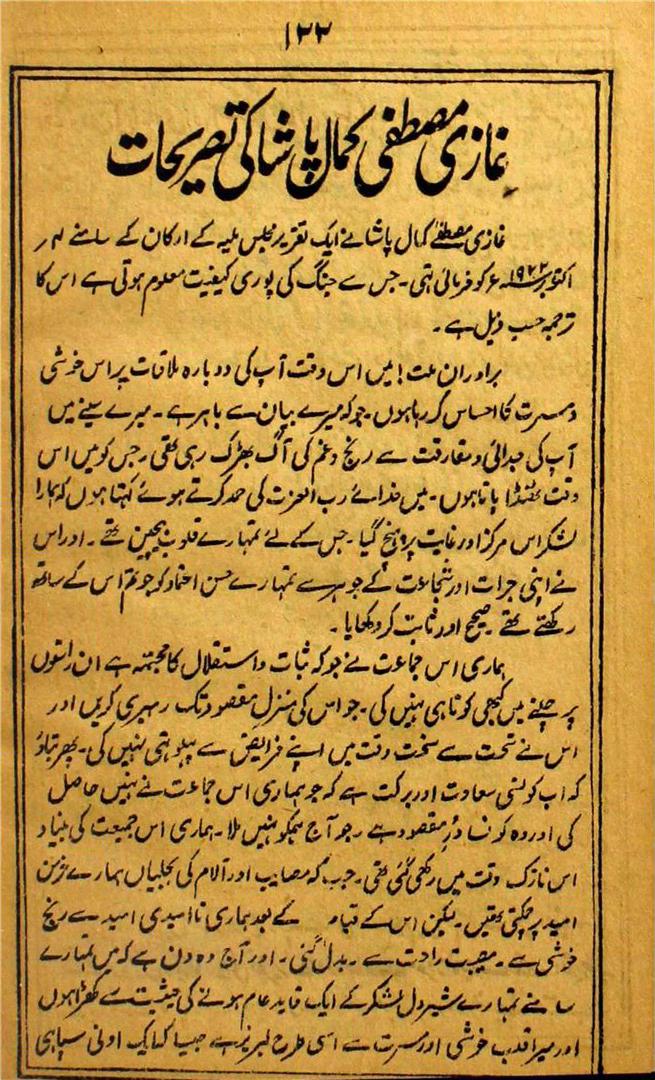 ۱۲۲
غازی مصطفی کمال پاشا کی تصریحات
غازی مصطفےٰ کمال پاشا نے ایک تقریر مجلس ملیہ کے ارکان کے سامنے ۴ر
اکتوبر ۱۹۲۲ء کو فرمائی تہی۔ جس سے جنگ کی پوری کیفیت معلوم ہوتی ہے اس کا
ترجمہ حسب ذیل ہے۔
برادران ملت! میں اس وقت آپ کی دوبارہ ملاقات پر اس خوشی
و مسرت کا احساس کر رہا ہوں۔ جو کہ میرے بیان سے باہر ہے۔ میرے سینے میں
آپ کی جدائی و مفارقت سے رنج و غم کی آگ بھڑک رہی تھی۔ جس کو میں اس
وقت ٹھنڈا پاتا ہوں۔ میں خدائے رب العزت کی حمد کرتے ہوئے کہتا ہوں کہ ہمارا
لشکر اس مرکز اور غایت پر پہنچ گیا۔ جس کے لئے تمہارے قلوب بیچین تھے۔ اور اس
نے اپنی جرات اور شجاعت کے جوہر سے تمہارے حسن اعتماد کو جو تم اس کے ساتھ
رکھتے تھے۔ صحیح اور ثابت کر دکھایا۔
ہماری اس جماعت نے جو کہ ثبات و استقلال کا مجسمہ ہے ان راستوں
پر چلنے میں کبھی کوتاہی نہیں کی۔ جو اس کی منزل مقصود تک رہبری کریں اور
اس نے سخت سے سخت وقت میں اپنے فرایض سے پہلو تہی نہیں کی۔ پھر بتاؤ
کہ اب کونسی سعادت اور برکت ہے کہ جو ہماری اس جماعت نے نہیں حاصل
کی اور وہ کونسا دُرِ مقصود ہے۔ جو آج ہمکو نہیں ملا۔ ہماری اس جمیعت کی بنیاد
اس نازک وقت میں رکھی گئی تھی۔ جب کہ مصایب اور آلام کی بجلیاں ہمارے خرمن
امید پر چمکتی تھیں۔ لیکن اس کے قیام کے بعد ہماری نا امیدی امید سے رنج
خوشی سے۔ مصیبت راحت سے۔ بدل گئی۔ اور آج وہ دن ہے کہ میں تمہارے
سامنے تمہارے شیردل لشکر کے ایک قاید عام ہونے کی حیثیت سے کھڑا ہوں
اور میرا قلب خوشی اور مسرت سے اسی طرح لبریز ہے جیسا کہ ایک ادنی سپاہی